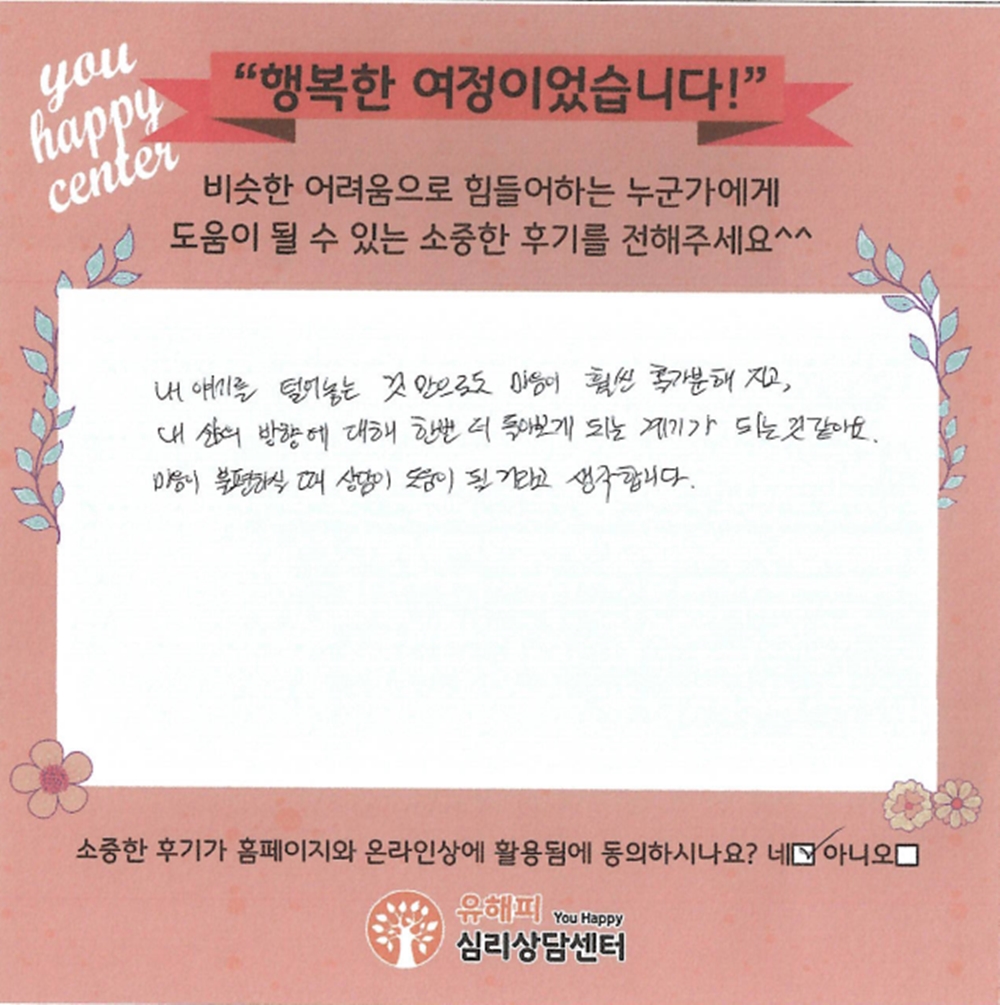 you
happy
center
“행복한 여정이었습니다!”
비슷한 어려움으로 힘들어하는 누군가에게
도움이 될 수 있는 소중한 후기를 전해주세요^^
내 얘기를 털어놓는 것 만으로도 마음이 훨씬 홀가분해 지고,
내 삶의 방향에 대해 한번 더 돌아보게 되는 계기가 되는것 같아요.
마음이 불편하실 때 상담이 도움이 될 거라고 생각합니다.
소중한 후기가 홈페이지와 온라인상에 활용됨에 동의하시나요? 네☑ 아니오☐
유해피 You Happy
심리상담센터